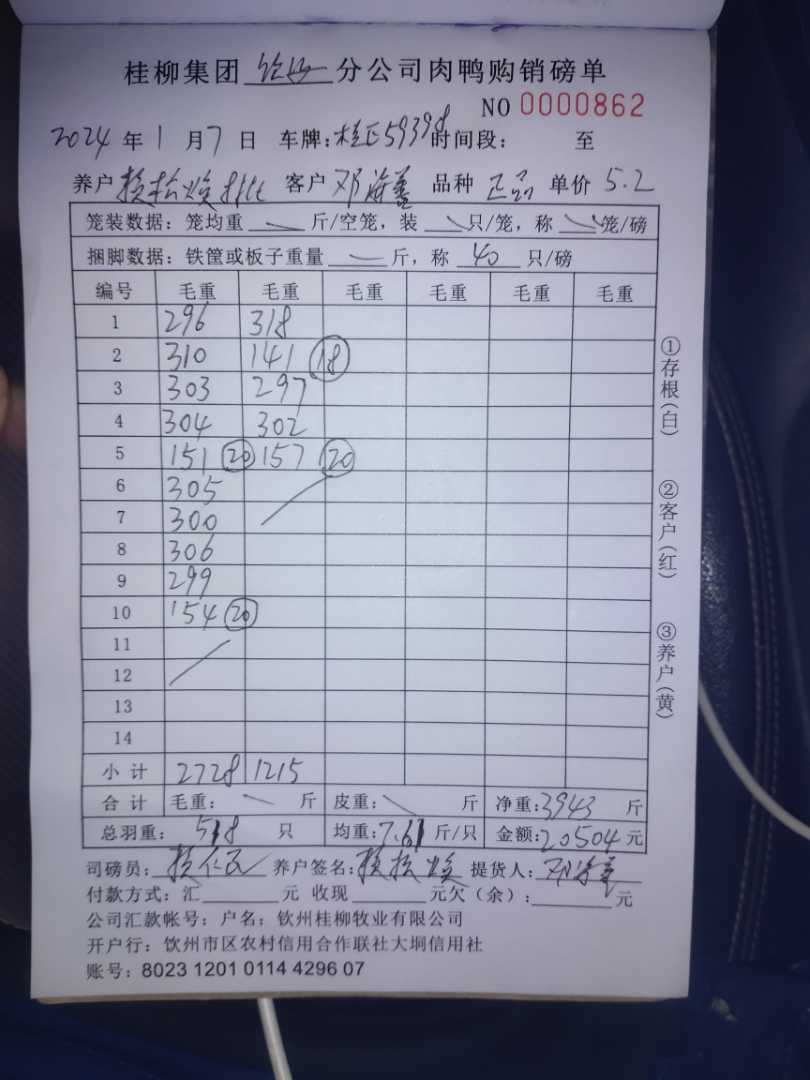 桂柳集团 分公司肉鸭购销磅单
NO 0000862
2024 年 1 月 7 日 车牌：桂 59398 时间段： 至
养户 客户 邓海 品种 正品 单价 5.2
笼装数据：笼均重 斤/空笼，装 只/笼，称 笼/磅
捆脚数据：铁筐或板子重量 斤，称 40 只/磅
编号 毛重 毛重 毛重 毛重 毛重 毛重
1 296 318
2 310 141 18
3 303 297
4 304 302
5 151 20 157 20
6 305
7 300
8 306
9 299
10 154 20
11
12
13
14
小计 2728 1215
合计 毛重： 斤 皮重： 斤 净重：3943 斤
总羽重： 518 只 均重：7.61 斤/只 金额：20504 元
司磅员： 养户签名： 提货人：邓海
付款方式：汇 元 收现 元欠（余）： 元
公司汇款帐号：户名：钦州桂柳牧业有限公司
开户行：钦州市区农村信用合作联社大垌信用社
账号：8023 1201 0114 4296 07
①存根（白）
②客户（红）
③养户（黄）